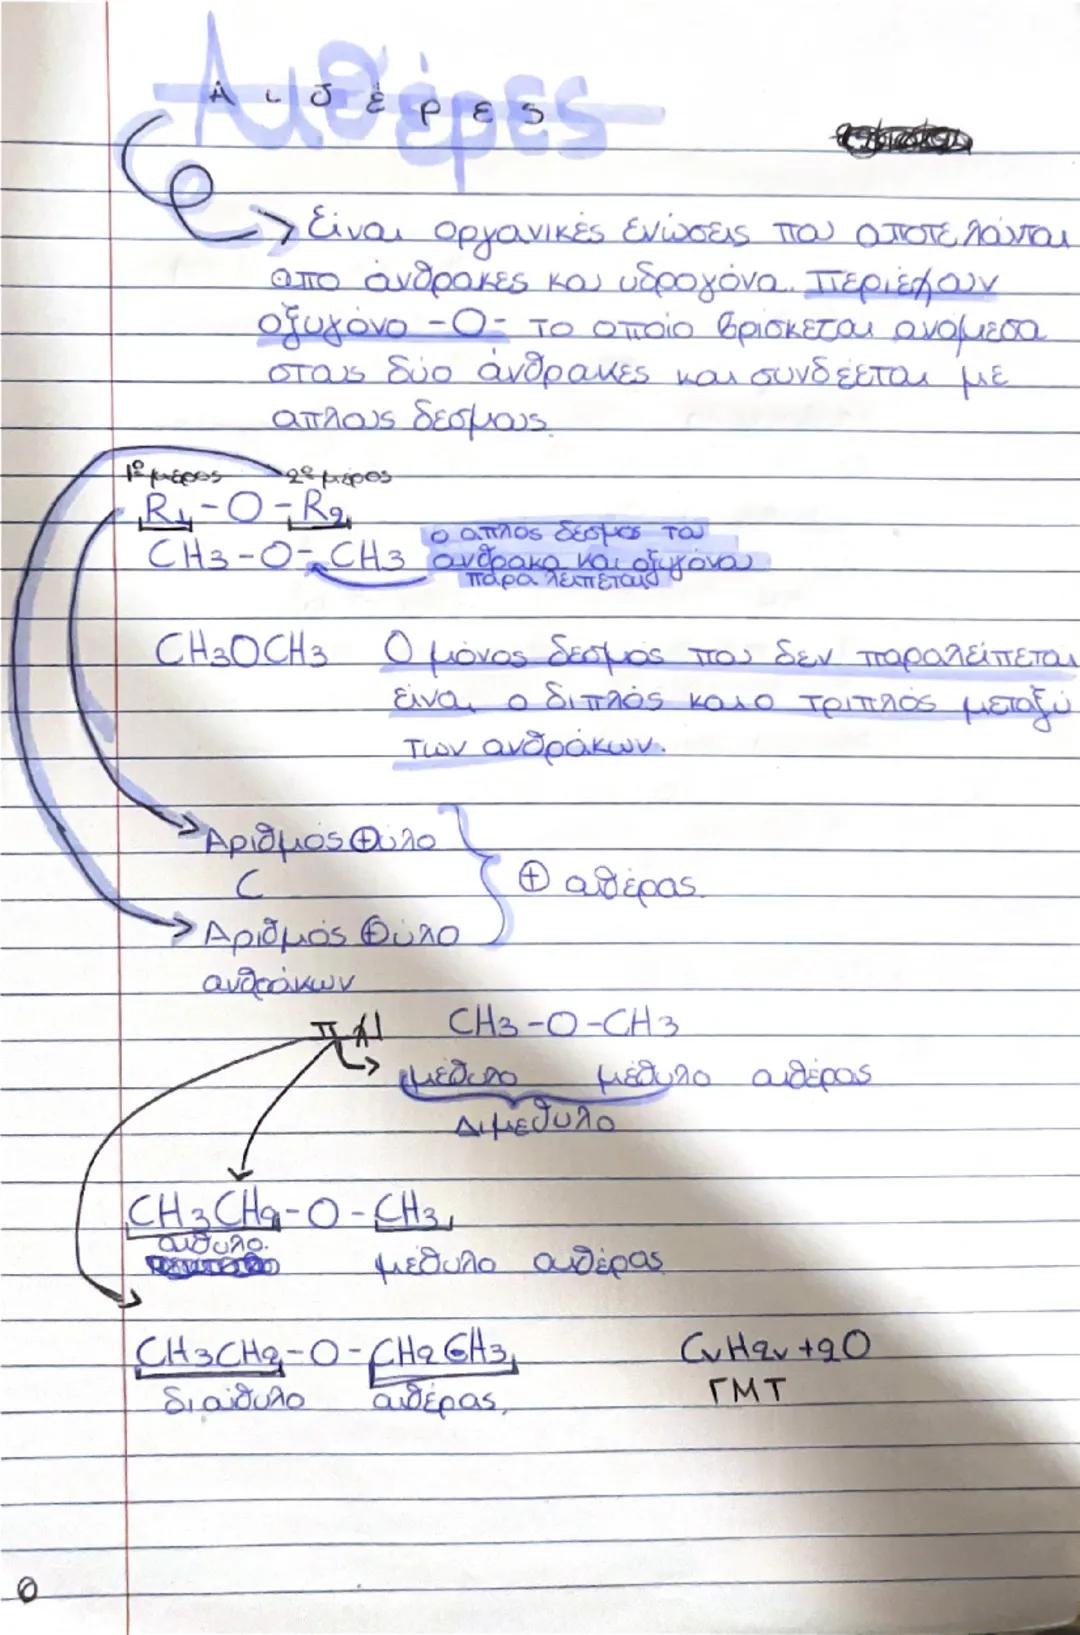 Αιθέρες
Αιθέρες
Είναι οργανικές ενώσεις που αποτελούνται
απο άνθρακες και υδρογόνα. Περιέχουν
οξυγόνο -O- το οποίο βρίσκεται ανάμεσα
στους δύο άνθρακες και συνδέεται με
απλους δεσμους.
1º μέρος 2º μέρος
R1-O-R2
CH3-O-CH3
ο απλος δεσμος του
ανθρακα και οξυγόνου
παραλειπεται
CH3OCH3 Ο μόνος δεσμός που δεν παραλείπεται
είναι ο διπλός και ο τριπλός μεταξύ
των ανθράκων.
Αριθμός ⊕ύλο
C
⊕ αιθέρας.
Αριθμός ⊕ύλο
ανθράκων
πχ1 CH3-O-CH3
μέθυλο μέθυλο αιθέρας
Διμεθυλο
CH3CH2-O-CH3
αιθυλο.
μέθυλο αιθέρας
CH3CH2-O-CH2CH3 CνH2ν+2O
διαιθυλο αιθέρας. ΓΜΤ